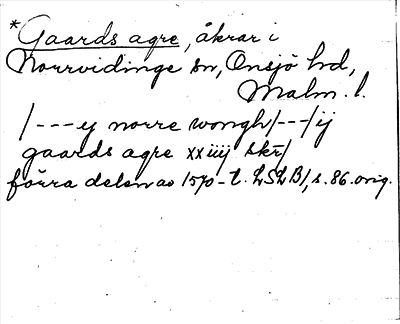 *Gaards agre, åkrar i
Norrvidinge sn, Onsjö hd,
Malm. l.
/---ij norre wongh/---/ij
gaards agre xxiiij skr/
förra delen av 1570-t. LSLB/, s. 86. orig.